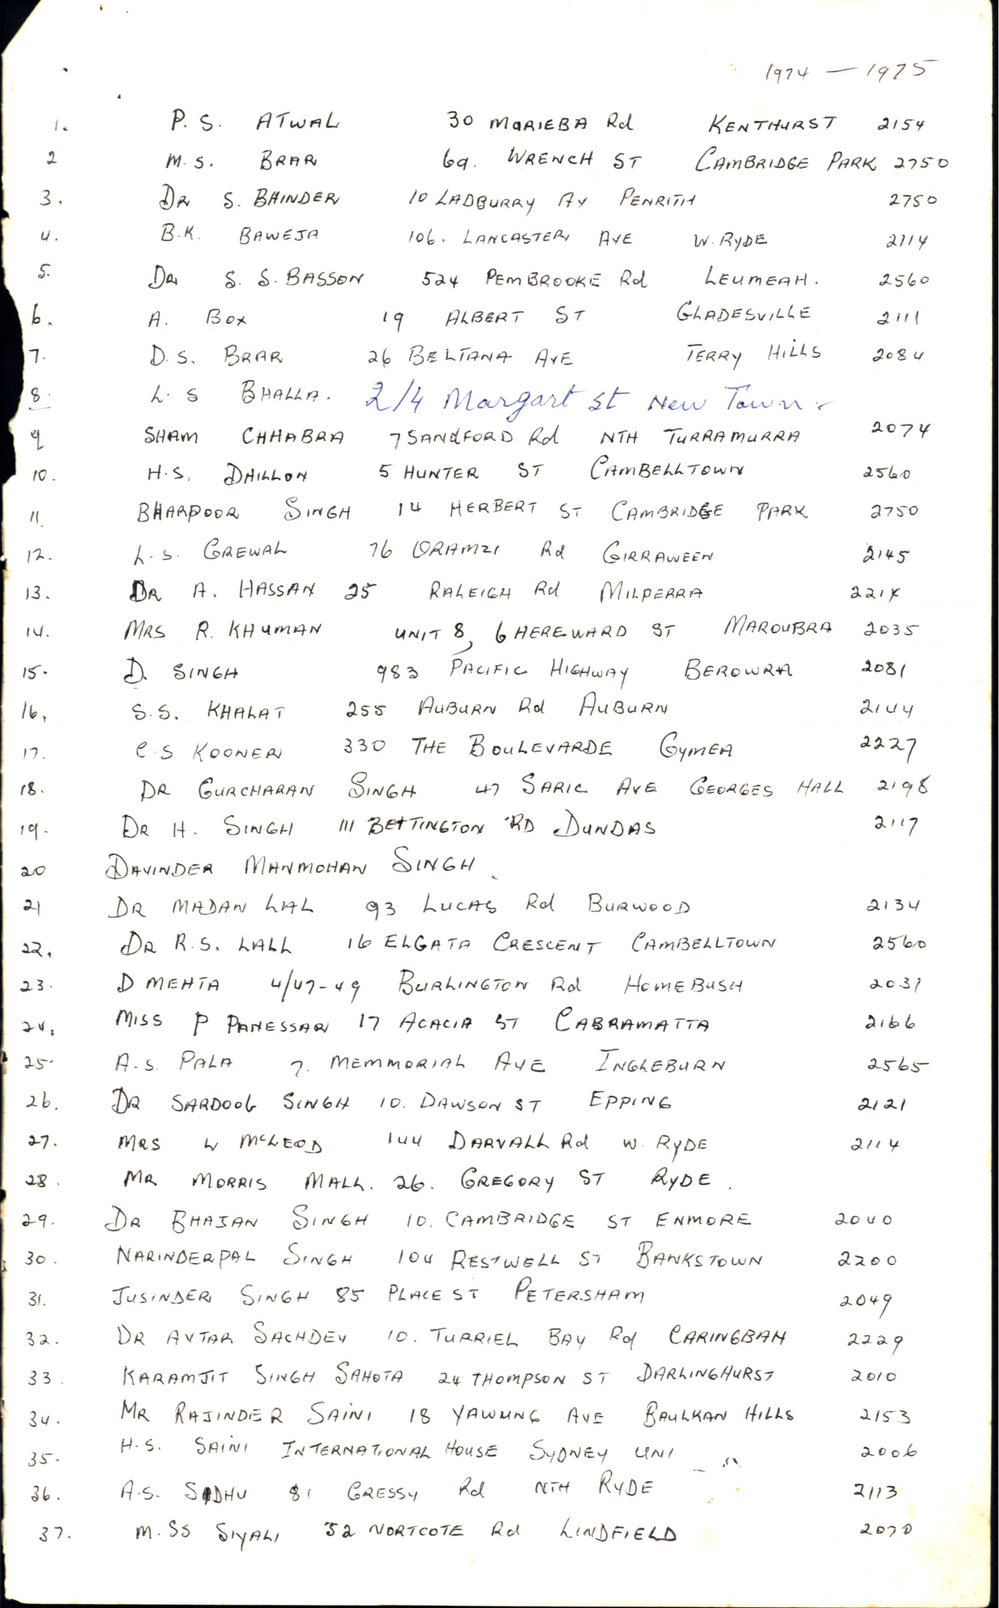 1974 — 1975
1. P. S. ATWAL 30 MARIEBA Rd KENTHURST 2154
2 M. S. BRAR 69. WRENCH ST CAMBRIDGE PARK 2750
3. DR S. BHINDER 10 LADBURRY AV PENRITH 2750
4. B.K. BAWEJA 106. LANCASTER AVE W. RYDE 2114
5. DR S. S. BASSON 524 PEMBROOKE Rd LEUMEAH. 2560
6. A. BOX 19 ALBERT ST GLADESVILLE 2111
7. D. S. BRAR 26 BELTANA AVE TERRY HILLS 2084
8. L. S BHALLA. 2/4 Margart St New Town.
9 SHAM CHHABRA 7 SANDFORD Rd NTH TURRAMURRA 2074
10. H.S. DHILLON 5 HUNTER ST CAMBELLTOWN 2560
11. BHARPOOR SINGH 14 HERBERT ST CAMBRIDGE PARK 2750
12. L. S. GREWAL 76 ORAMZI Rd GIRRAWEEN 2145
13. DR A. HASSAN 25 RALEIGH Rd MILPERRA
14. MRS R. KHUMAN UNIT 8, 6 HEREWARD ST MAROUBRA 2035
15. D. SINGH 983 PACIFIC HIGHWAY BEROWRA 2081
16. S.S. KHALAT 255 AUBURN Rd AUBURN 2144
17. C.S KOONER 330 THE BOULEVARDE GYMEA 2227
18. DR GURCHARAN SINGH 47 SARIC AVE GEORGES HALL 2198
19. DR H. SINGH 111 BETTINGTON RD DUNDAS 2117
20 DAVINDER MANMOHAN SINGH.
21 DR MADAN LAL 93 LUCAS Rd BURWOOD 2134
22. DR R.S. LALL 16 ELGATA CRESCENT CAMBELLTOWN 2560
23. D MEHTA 4/47-49 BURLINGTON Rd HOMEBUSH 2031
24. MISS P PANESSAR 17 ACACIA ST CABRAMATTA 2166
25. A.S. PALA 7. MEMMORIAL AVE INGLEBURN 2565
26. DR SARDOOL SINGH 10. DAWSON ST EPPING 2121
27. MRS W MCLEOD 144 DARVALL Rd W. RYDE 2114
28. MR MORRIS MALL. 26. GREGORY ST RYDE.
29. DR BHAJAN SINGH 10. CAMBRIDGE ST ENMORE 2040
30. NARINDERPAL SINGH 104 RESTWELL ST BANKSTOWN 2200
31. JUSINDER SINGH 85 PLACE ST PETERSHAM 2049
32. DR AVTAR SACHDEV 10. TURRIEL BAY Rd CARINGBAH 2229
33. KARAMJIT SINGH SAHOTA 24 THOMPSON ST DARLINGHURST 2010
34. MR RAJINDER SAINI 18 YAWUNG AVE BAULKAN HILLS 2153
35. H.S. SAINI INTERNATIONAL HOUSE SYDNEY UNI 2006
36. A.S. SIDHU 81 CRESSY Rd NTH RYDE 2113
37. M.SS SIYALI 52 NORTCOTE Rd LINDFIELD 2070